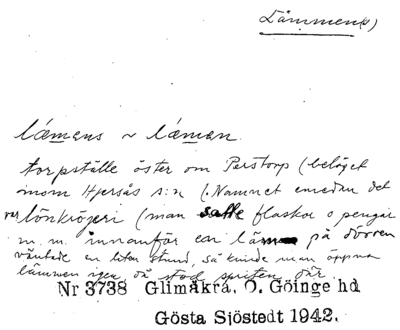 Lämmen(s)
læmens ~ læmen.
torpställe öster om Perstorp (beläget
inom Hjersås s:n (. Namnet emedan det
var lönkrögeri (man satte flaskor o pengar
m. m. innanför en läm på dörren
väntade en liten stund, så kunde man öppna
lämmen igen då stod spriten där
Nr 3738 Glimåkra, Ö. Göinge hd
Gösta Sjöstedt 1942.